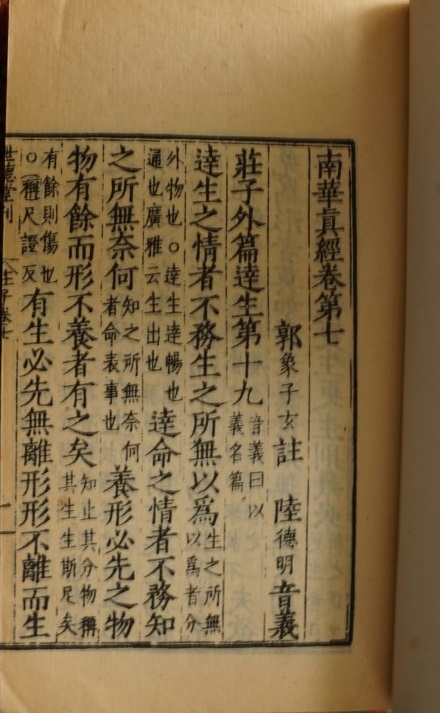 南華真經卷第七
郭象子玄註 陸德明音義
莊子外篇達生第十九 音義曰以義名篇
達生之情者不務生之所無以爲 生之所無以爲者分
外物也○達生達暢也通也廣雅云生出也 達命之情者不務知
之所無奈何 知之所無奈何者命表事也 養形必先之物
物有餘而形不養者有之矣 知止其分物稱其生生斯足矣
有餘則傷也○稱尺證反 有生必先無離形形不離而生